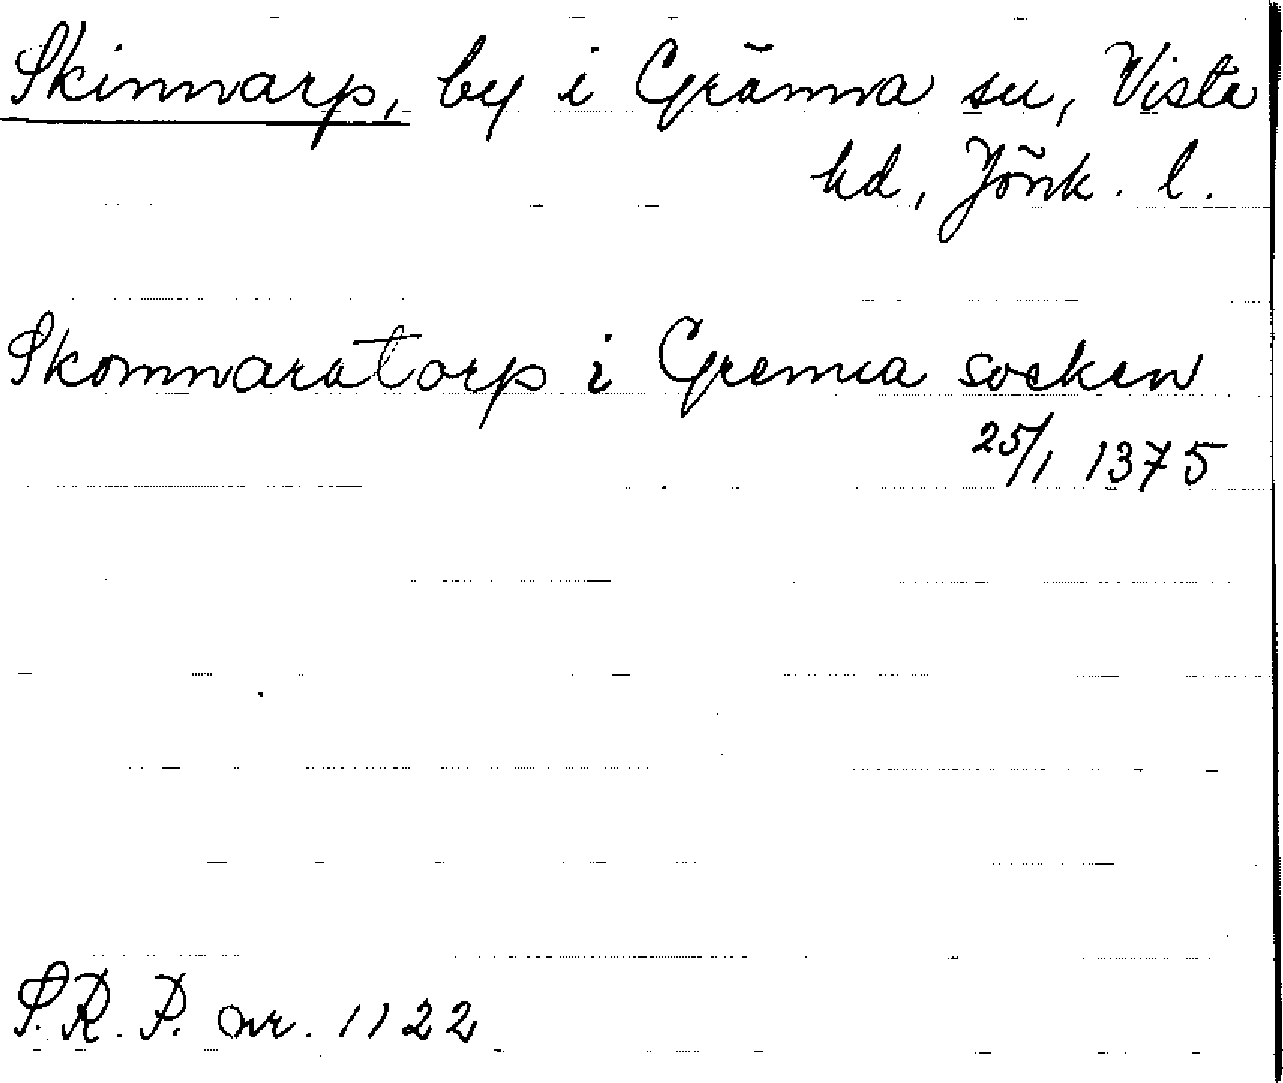 Skinnarp, by i Gränna sn, Vista
hd, Jönk. l.
Skomnaratorp i Grenna socken
25/1 1375
S.R.P. nr. 1122